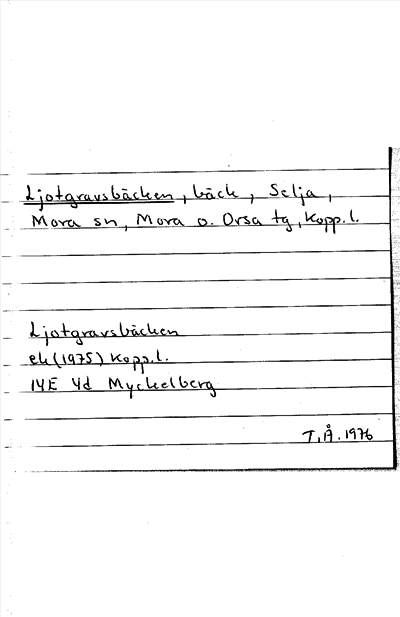 Ljotgravsbäcken, bäck, Selja,
Mora sn, Mora o. Orsa tg, Kopp. l.
Ljotgravsbäcken
ek (1975) Kopp. l.
14E 4d Myckelberg
T. Å. 1976